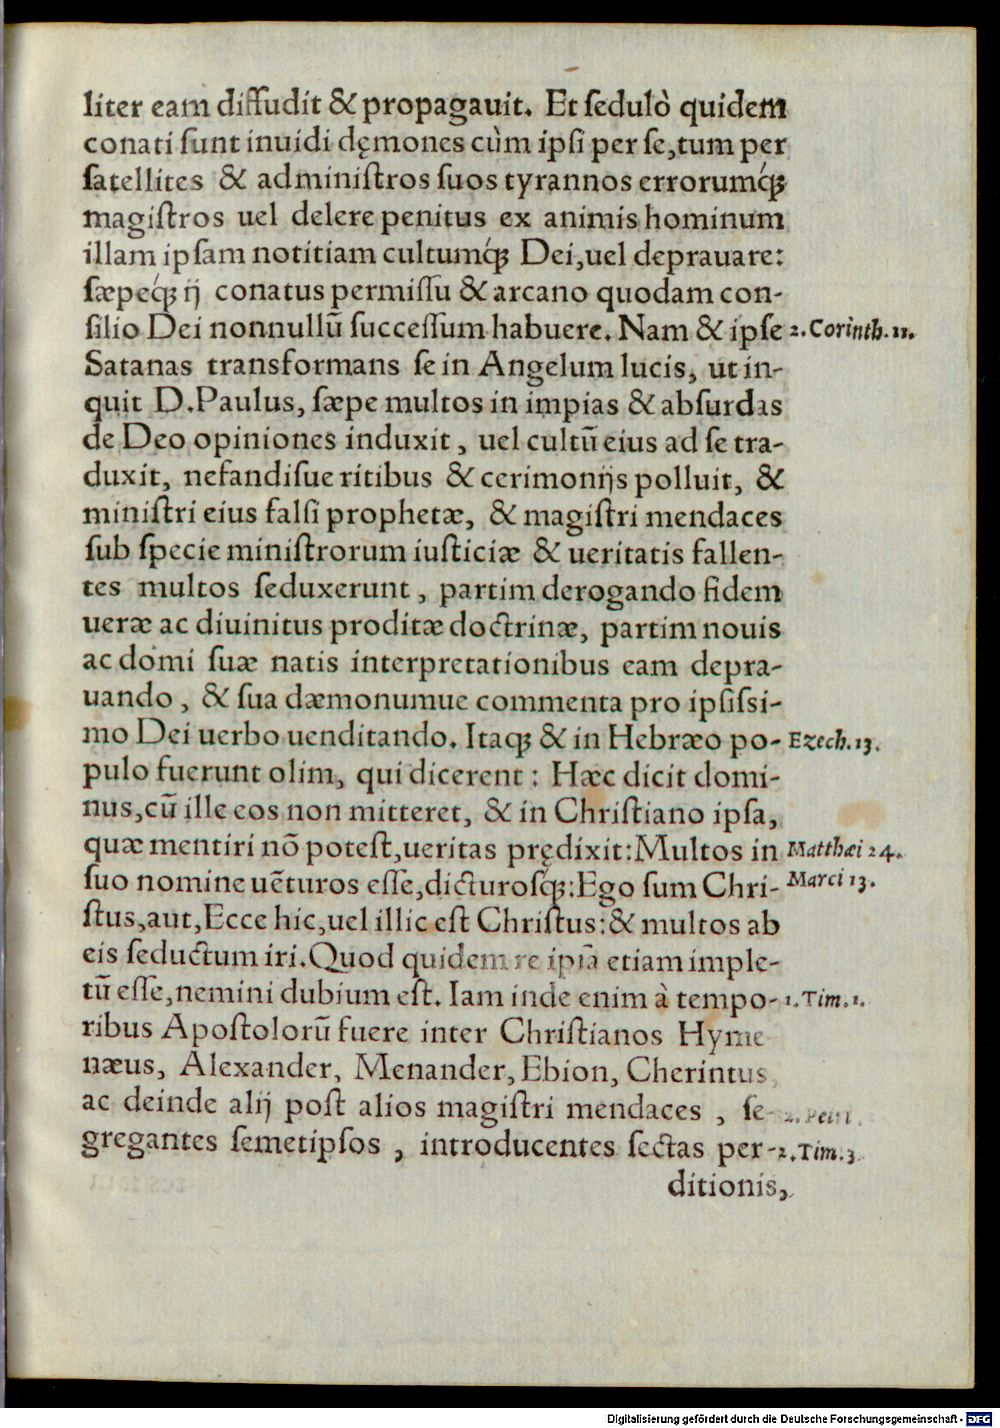 liter eam diffudit & propagauit. Et sedulò quidem
conati sunt inuidi dęmones cùm ipsi per se, tum per
satellites & administros suos tyrannos errorumq́ꝫ
magistros uel delere penitus ex animis hominum
illam ipsam notitiam cultumq́ꝫ Dei, uel deprauare:
sæpeq́ꝫ ij conatus permissu & arcano quodam con-
silio Dei nonnullū successum habuere. Nam & ipse 2. Corinth. 11.
Satanas transformans se in Angelum lucis, ut in-
quit D. Paulus, sæpe multos in impias & absurdas
de Deo opiniones induxit, uel cultū eius ad se tra-
duxit, nefandisue ritibus & cerimonijs polluit, &
ministri eius falsi prophetæ, & magistri mendaces
sub specie ministrorum iusticiæ & ueritatis fallen-
tes multos seduxerunt, partim derogando fidem
ueræ ac diuinitus proditæ doctrinæ, partim nouis
ac domi suæ natis interpretationibus eam depra-
uando, & sua dæmonumue commenta pro ipsissi-
mo Dei uerbo uenditando. Itaqꝫ & in Hebræo po- Ezech. 13.
pulo fuerunt olim, qui dicerent: Hæc dicit domi-
nus, cū ille eos non mitteret, & in Christiano ipsa,
quæ mentiri nō potest, ueritas prędixit: Multos in Matthæi 24.
suo nomine uēturos esse, dicturosq́ꝫ: Ego sum Chri- Marci 13.
stus, aut, Ecce hic, uel illic est Christus: & multos ab
eis seductum iri. Quod quidem re ipsā etiam imple-
tū esse, nemini dubium est. Iam inde enim à tempo- 1. Tim. 1.
ribus Apostolorū fuere inter Christianos Hyme
næus, Alexander, Menander, Ebion, Cherintus,
ac deinde alij post alios magistri mendaces, se- 2. Petri
gregantes semetipsos, introducentes sectas per- 2. Tim. 3
ditionis,
Digitalisierung gefördert durch die Deutsche Forschungsgemeinschaft - DFG